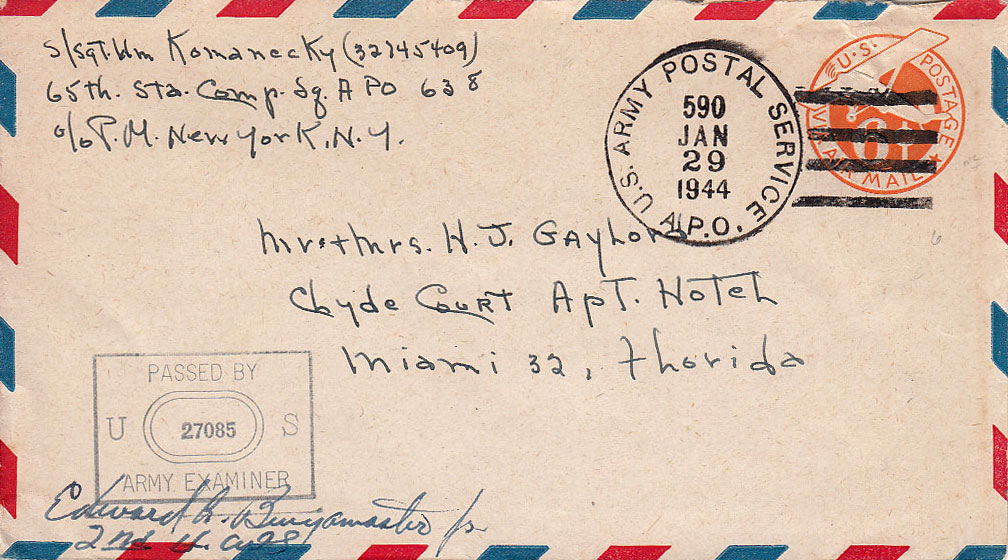 S/Sgt. Wm Komanecky (32745409)
65th. Sta. Comp. Sq. APO 638
c/o P.M. New York, N.Y.
U.S. ARMY POSTAL SERVICE
590
JAN
29
1944
A.P.O.
U.S. POSTAGE
6¢
VIA AIR MAIL
Mr + Mrs. H. J. Gaylord
Clyde Court Apt. Hotel
Miami 32, Florida
PASSED BY
U 27085 S
ARMY EXAMINER
Edward Jr
2nd Lt.